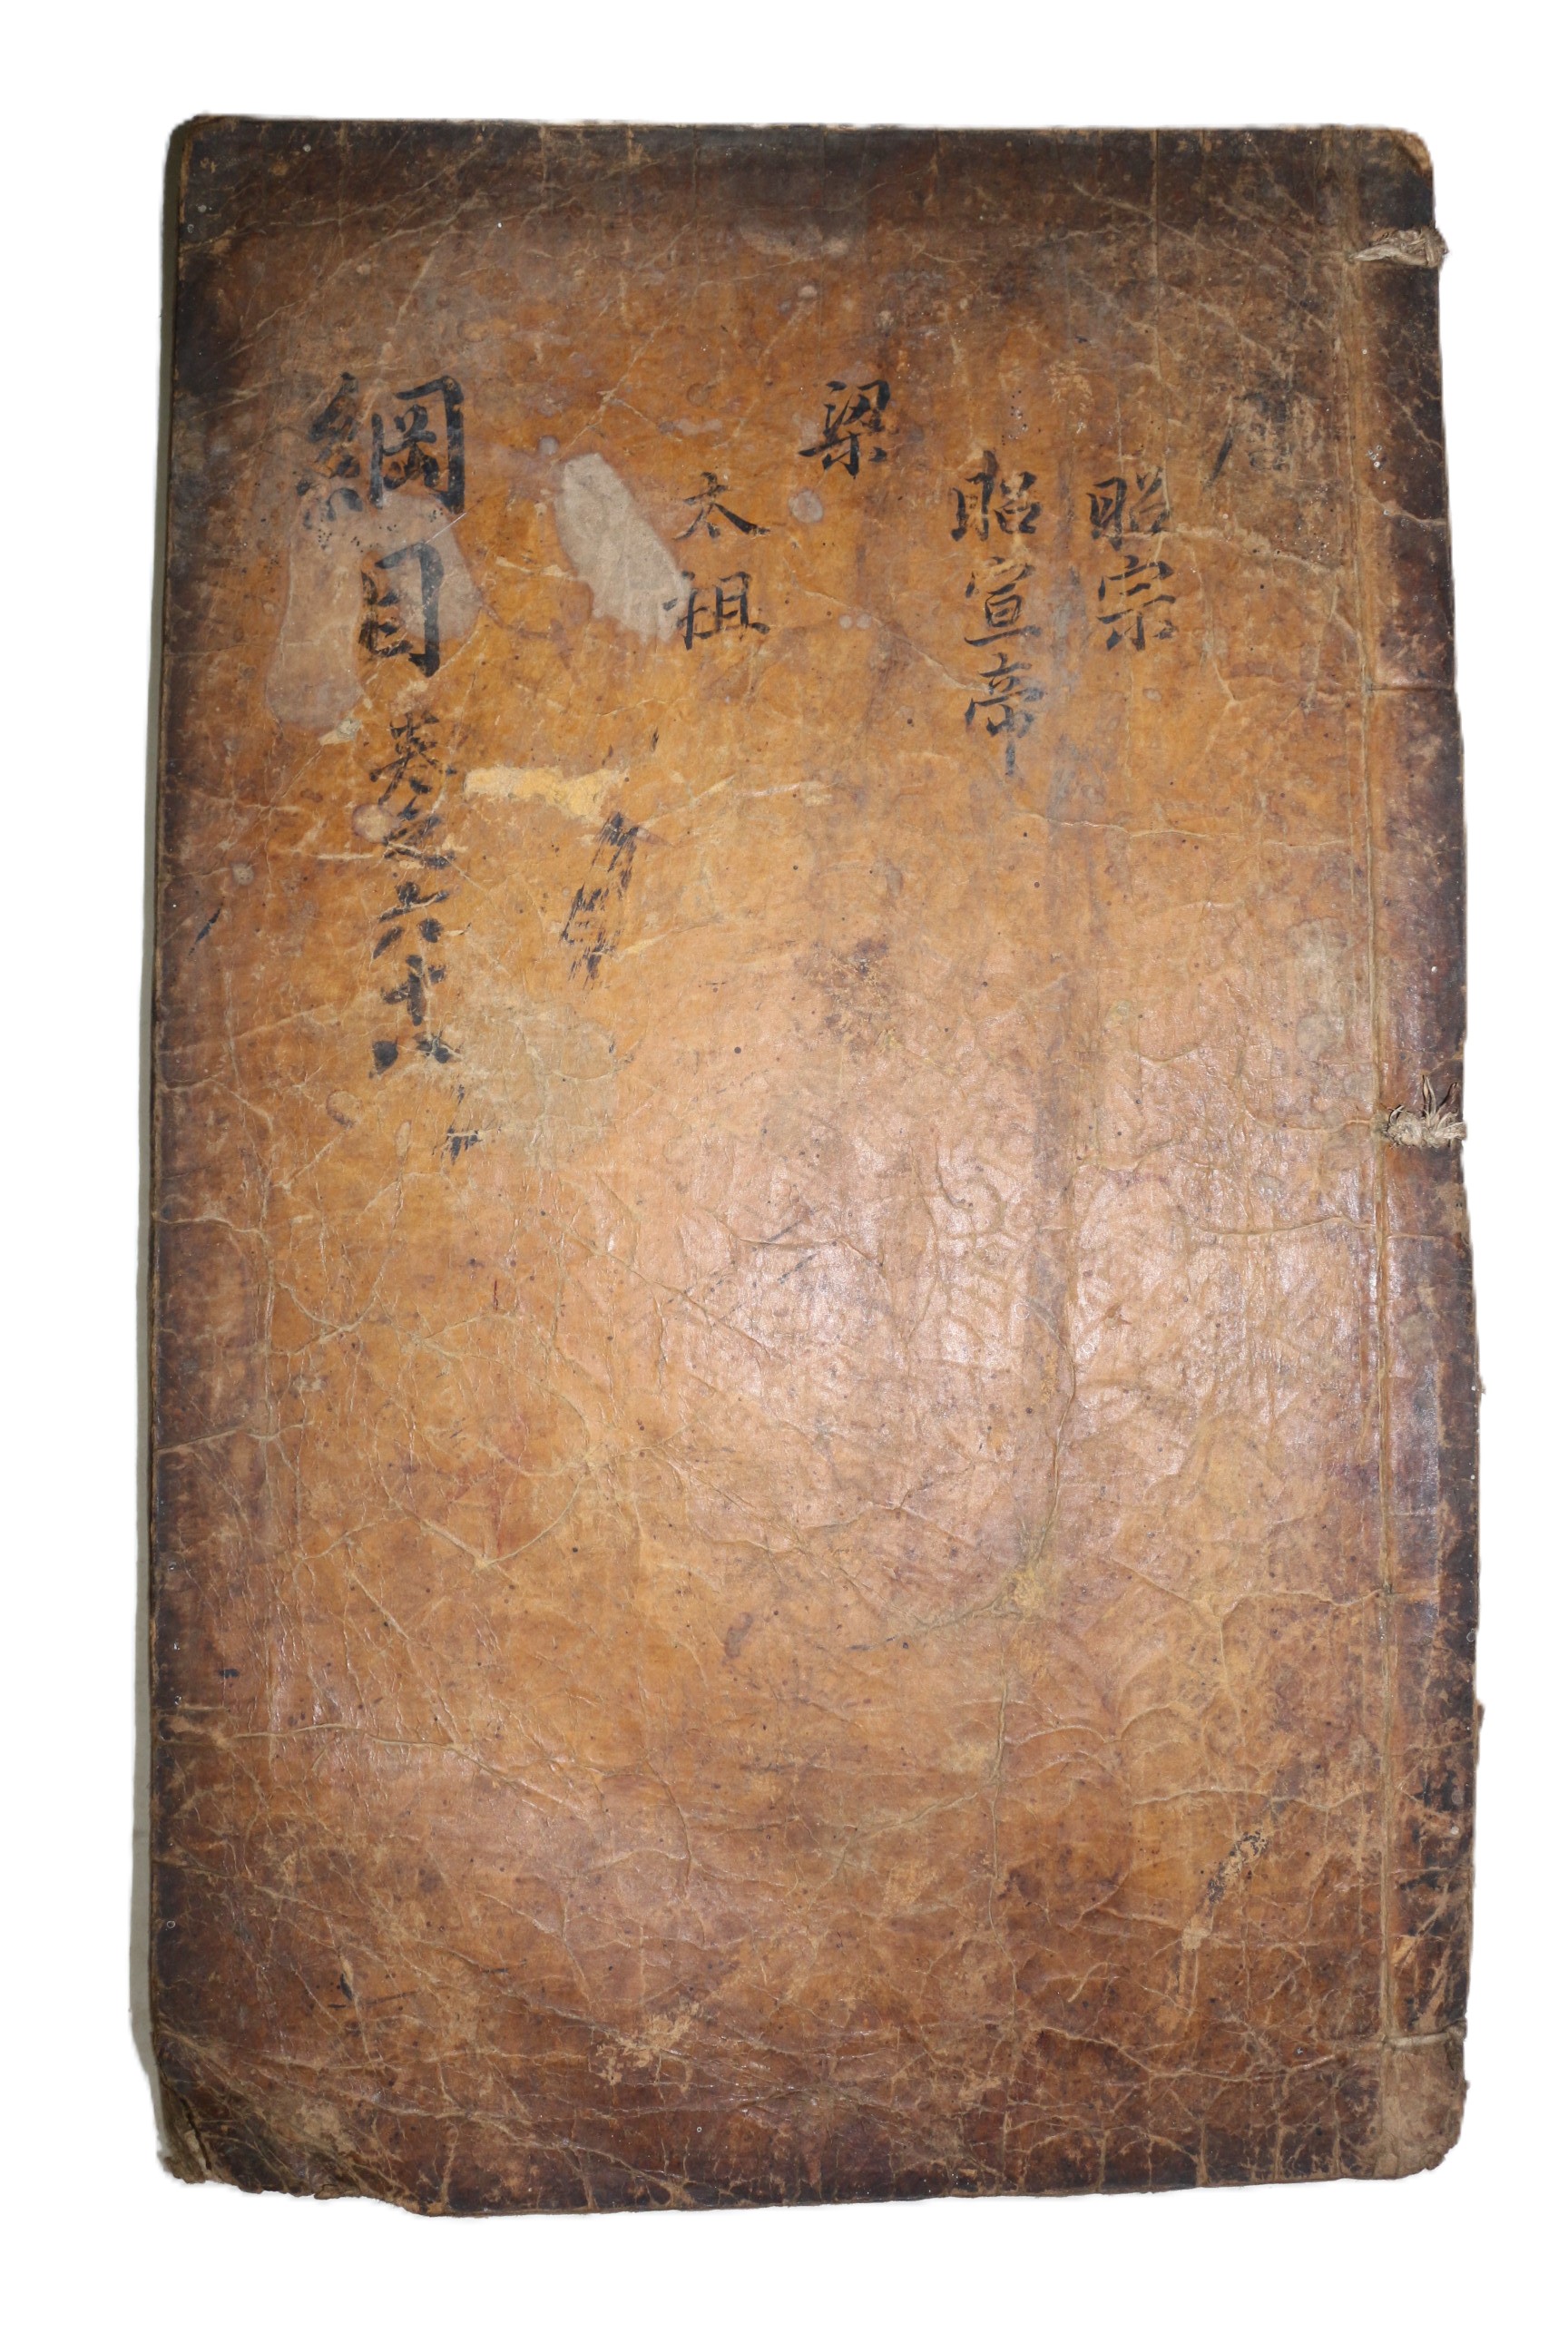 唐
昭宗
昭宣帝
梁
太祖
綱目 英之六十八